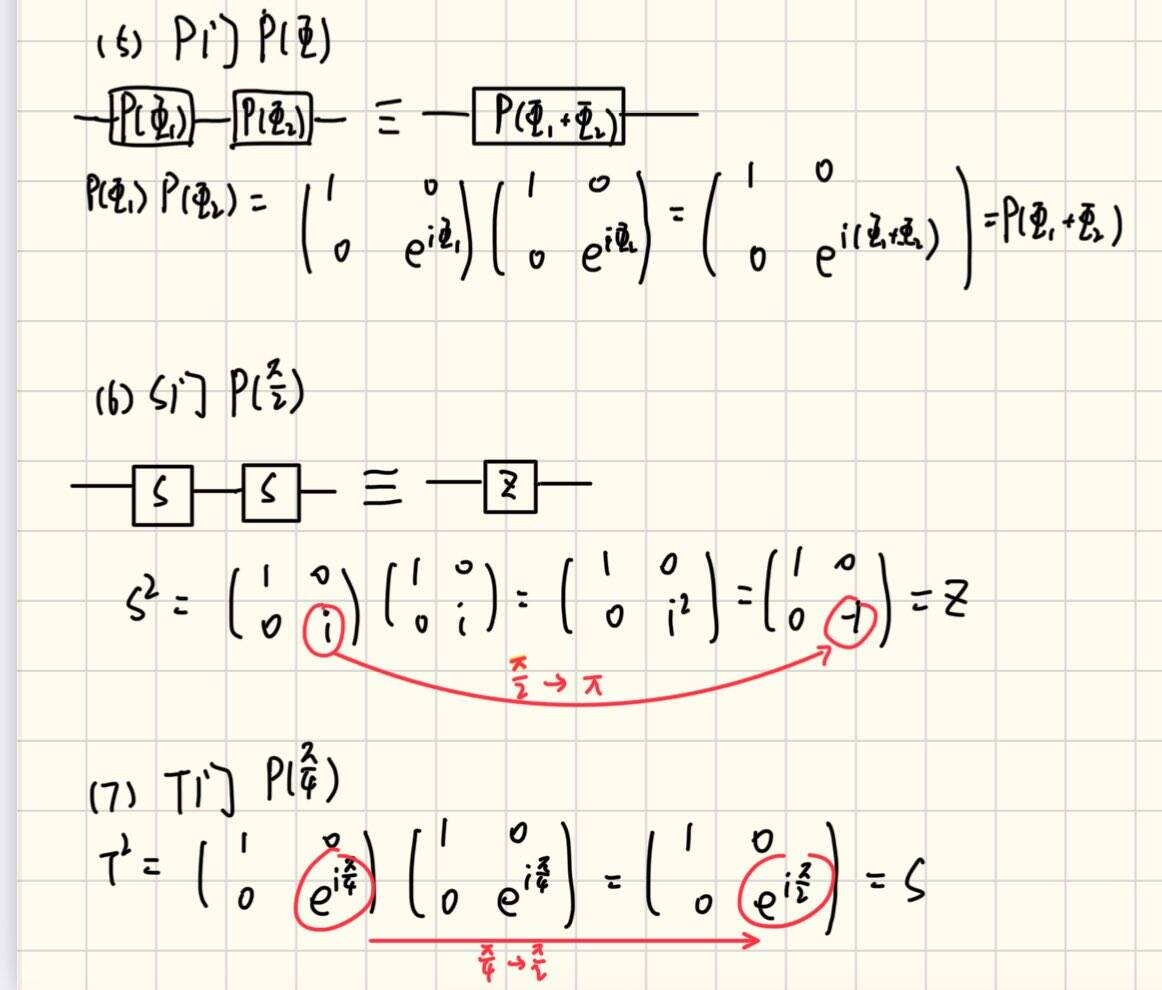 (5) P门 P(Φ)
P(Φ₁) P(Φ₂) ≡ P(Φ₁+Φ₂)
P(Φ₁) P(Φ₂) = (1 0; 0 e^{iΦ₁}) (1 0; 0 e^{iΦ₂}) = (1 0; 0 e^{i(Φ₁+Φ₂)}) = P(Φ₁+Φ₂)
(6) S门 P(π/2)
S S ≡ Z
S² = (1 0; 0 i) (1 0; 0 i) = (1 0; 0 i²) = (1 0; 0 -1) = Z
π/2 → π
(7) T门 P(π/4)
T² = (1 0; 0 e^{iπ/4}) (1 0; 0 e^{iπ/4}) = (1 0; 0 e^{iπ/2}) = S
π/4 → π/2